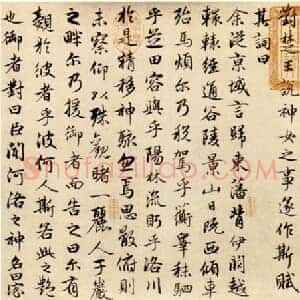 對楚王說神女之事遂作斯賦
其詞曰
余從京域言歸東藩背伊闕越
轘轅經通谷陵景山日既西傾車
殆馬煩爾乃稅駕乎蘅皋秣駟
乎芝田容與乎陽林流眄乎洛川
於是精移神駭忽焉思散俯則
未察仰以殊觀睹一麗人于巖
之畔爾乃援御者而告之曰爾有
覿於彼者乎彼何人斯若此之艷
也御者對曰臣聞河洛之神名曰宓